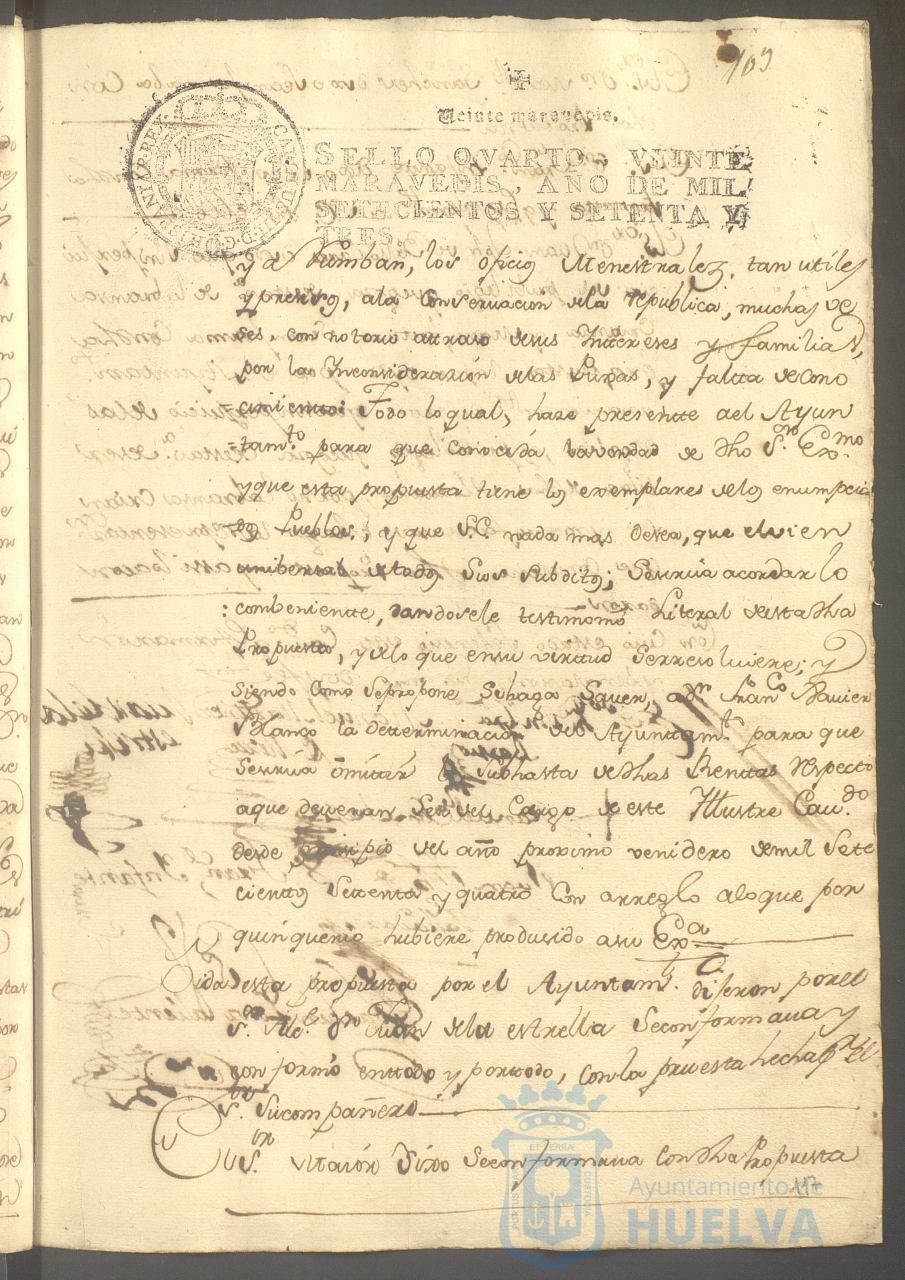 109
Veinte maravedis.
SELLO QVARTO, VEINTE
MARAVEDIS, AÑO DE MIL
SETECIENTOS Y SETENTA Y
TRES.
y los oficios Menestrales, tan utiles
y presisos, a la Conservacion de la republica, muchas ve
ses, con notorio atraso de sus Intereses y familias,
por las Inconsideración de las Puxas, y falta de cono
cimiento: Todo lo qual, haze presente a el Ayun
tamto para que Conocida la vondad de dho Sor Exmo
y que esta propuesta tiene los exemplares de los enumpcia
dos Pueblos, y que S.E. nada mas desea, que el vien
unibersal de todos sus subditos; Se sirva acordar lo
combeniente, dandosele testimonio Literal de esta dha
Propuesta, y de lo que en su virtud Se resolviere; y
Siendo Como Se propone Se haga Saver, a Dn Franco Xavier
Blanco la determinacion del Ayuntamto para que
Se sirva omitir la Subhasta de dhas Rentas respecto
a que deveran Ser del Cargo de este Illustre Cavdo
desde principio del año proximo venidero de mil Sete
cientos Setenta y quatro Con arreglo a lo que por
quinquenio hubiere producido a su Exa
Oida esta propuesta por el Ayuntamto dixeron por el
Sor Dn Juan de la estrella Se conformava y
conformó en todo y por todo, con la propuesta hecha pr el
Sor Su compañero
Sor Dixo Se conformava Con dha Propuesta
PORTUS MARIS ET TERRAE CUSTODIA
Ayuntamiento de
HUELVA